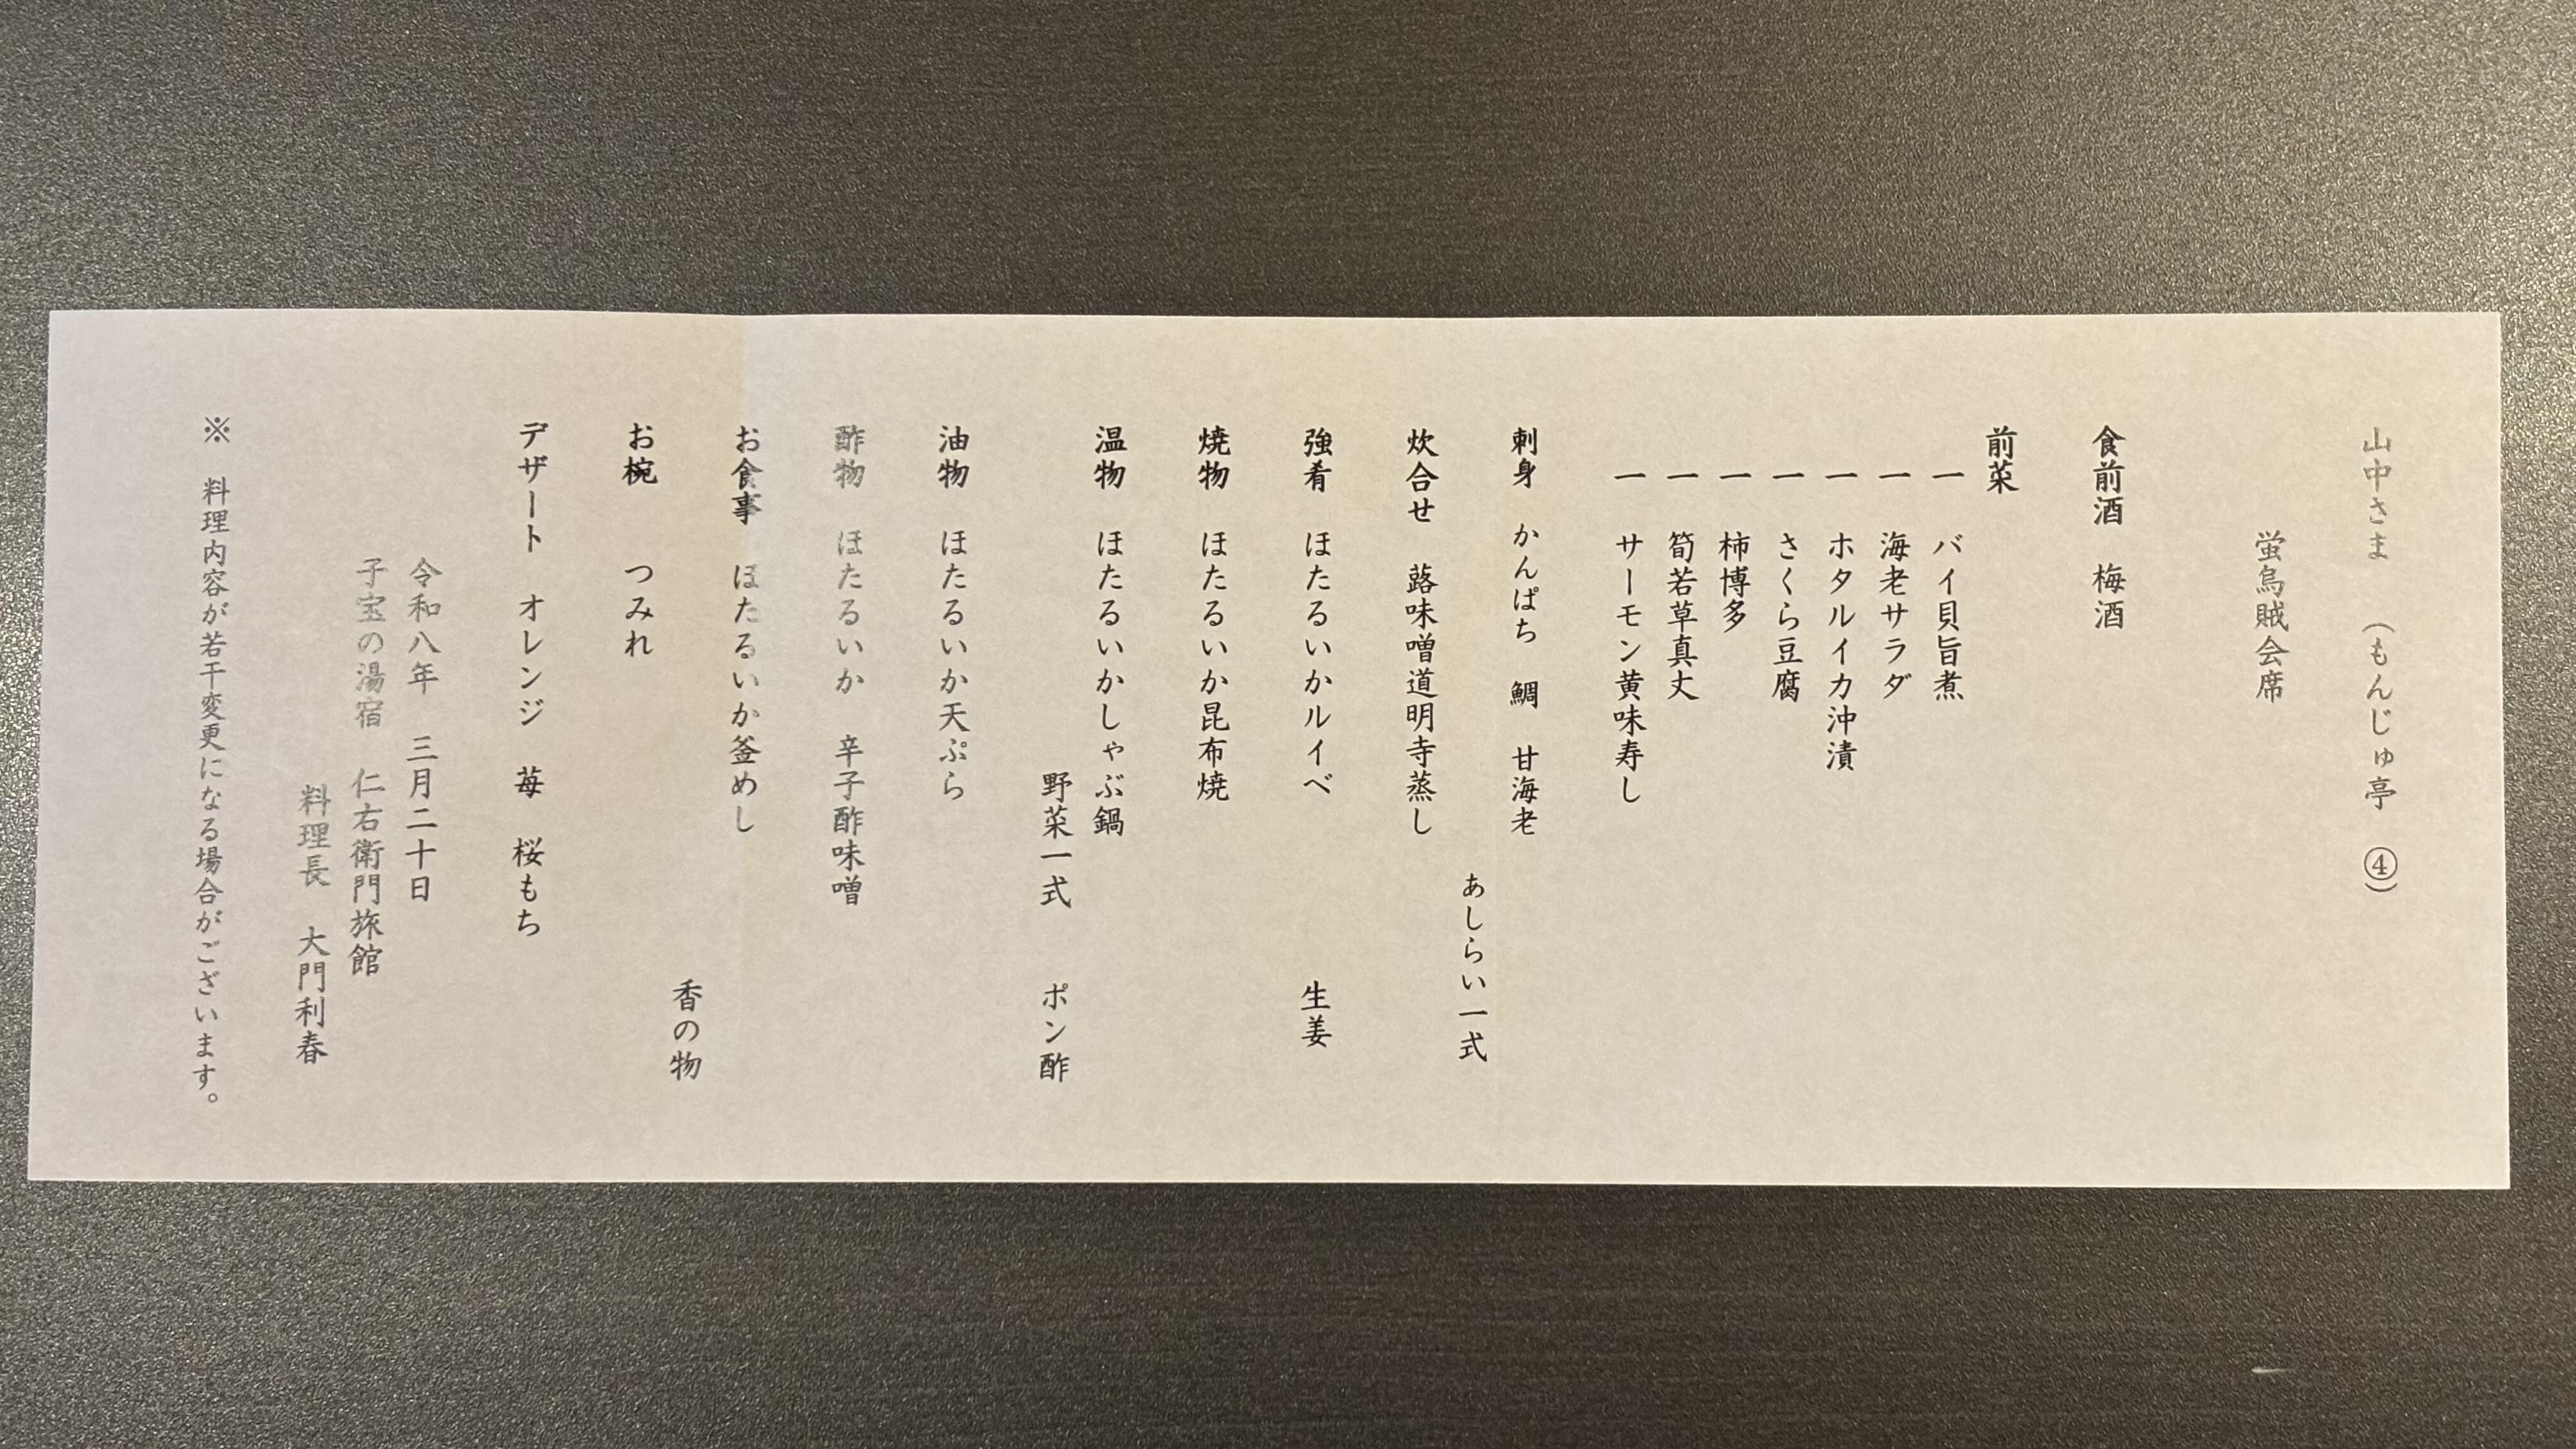 山中さま （もんじゅ亭 ④）
蛍烏賊会席
食前酒 梅酒
前菜
一 バイ貝旨煮
一 海老サラダ
一 ホタルイカ沖漬
一 さくら豆腐
一 柿博多
一 筍若草真丈
一 サーモン黄味寿し
刺身 かんぱち 鯛 甘海老
あしらい一式
炊合せ 蕗味噌道明寺蒸し
強肴 ほたるいかルイベ 生姜
焼物 ほたるいか昆布焼
温物 ほたるいかしゃぶ鍋
野菜一式 ポン酢
油物 ほたるいか天ぷら
酢物 ほたるいか 辛子酢味噌
お食事 ほたるいか釜めし
香の物
お椀 つみれ
デザート オレンジ 苺 桜もち
令和八年 三月二十日
子宝の湯宿 仁右衛門旅館
料理長 大門利春
※ 料理内容が若干変更になる場合がございます。